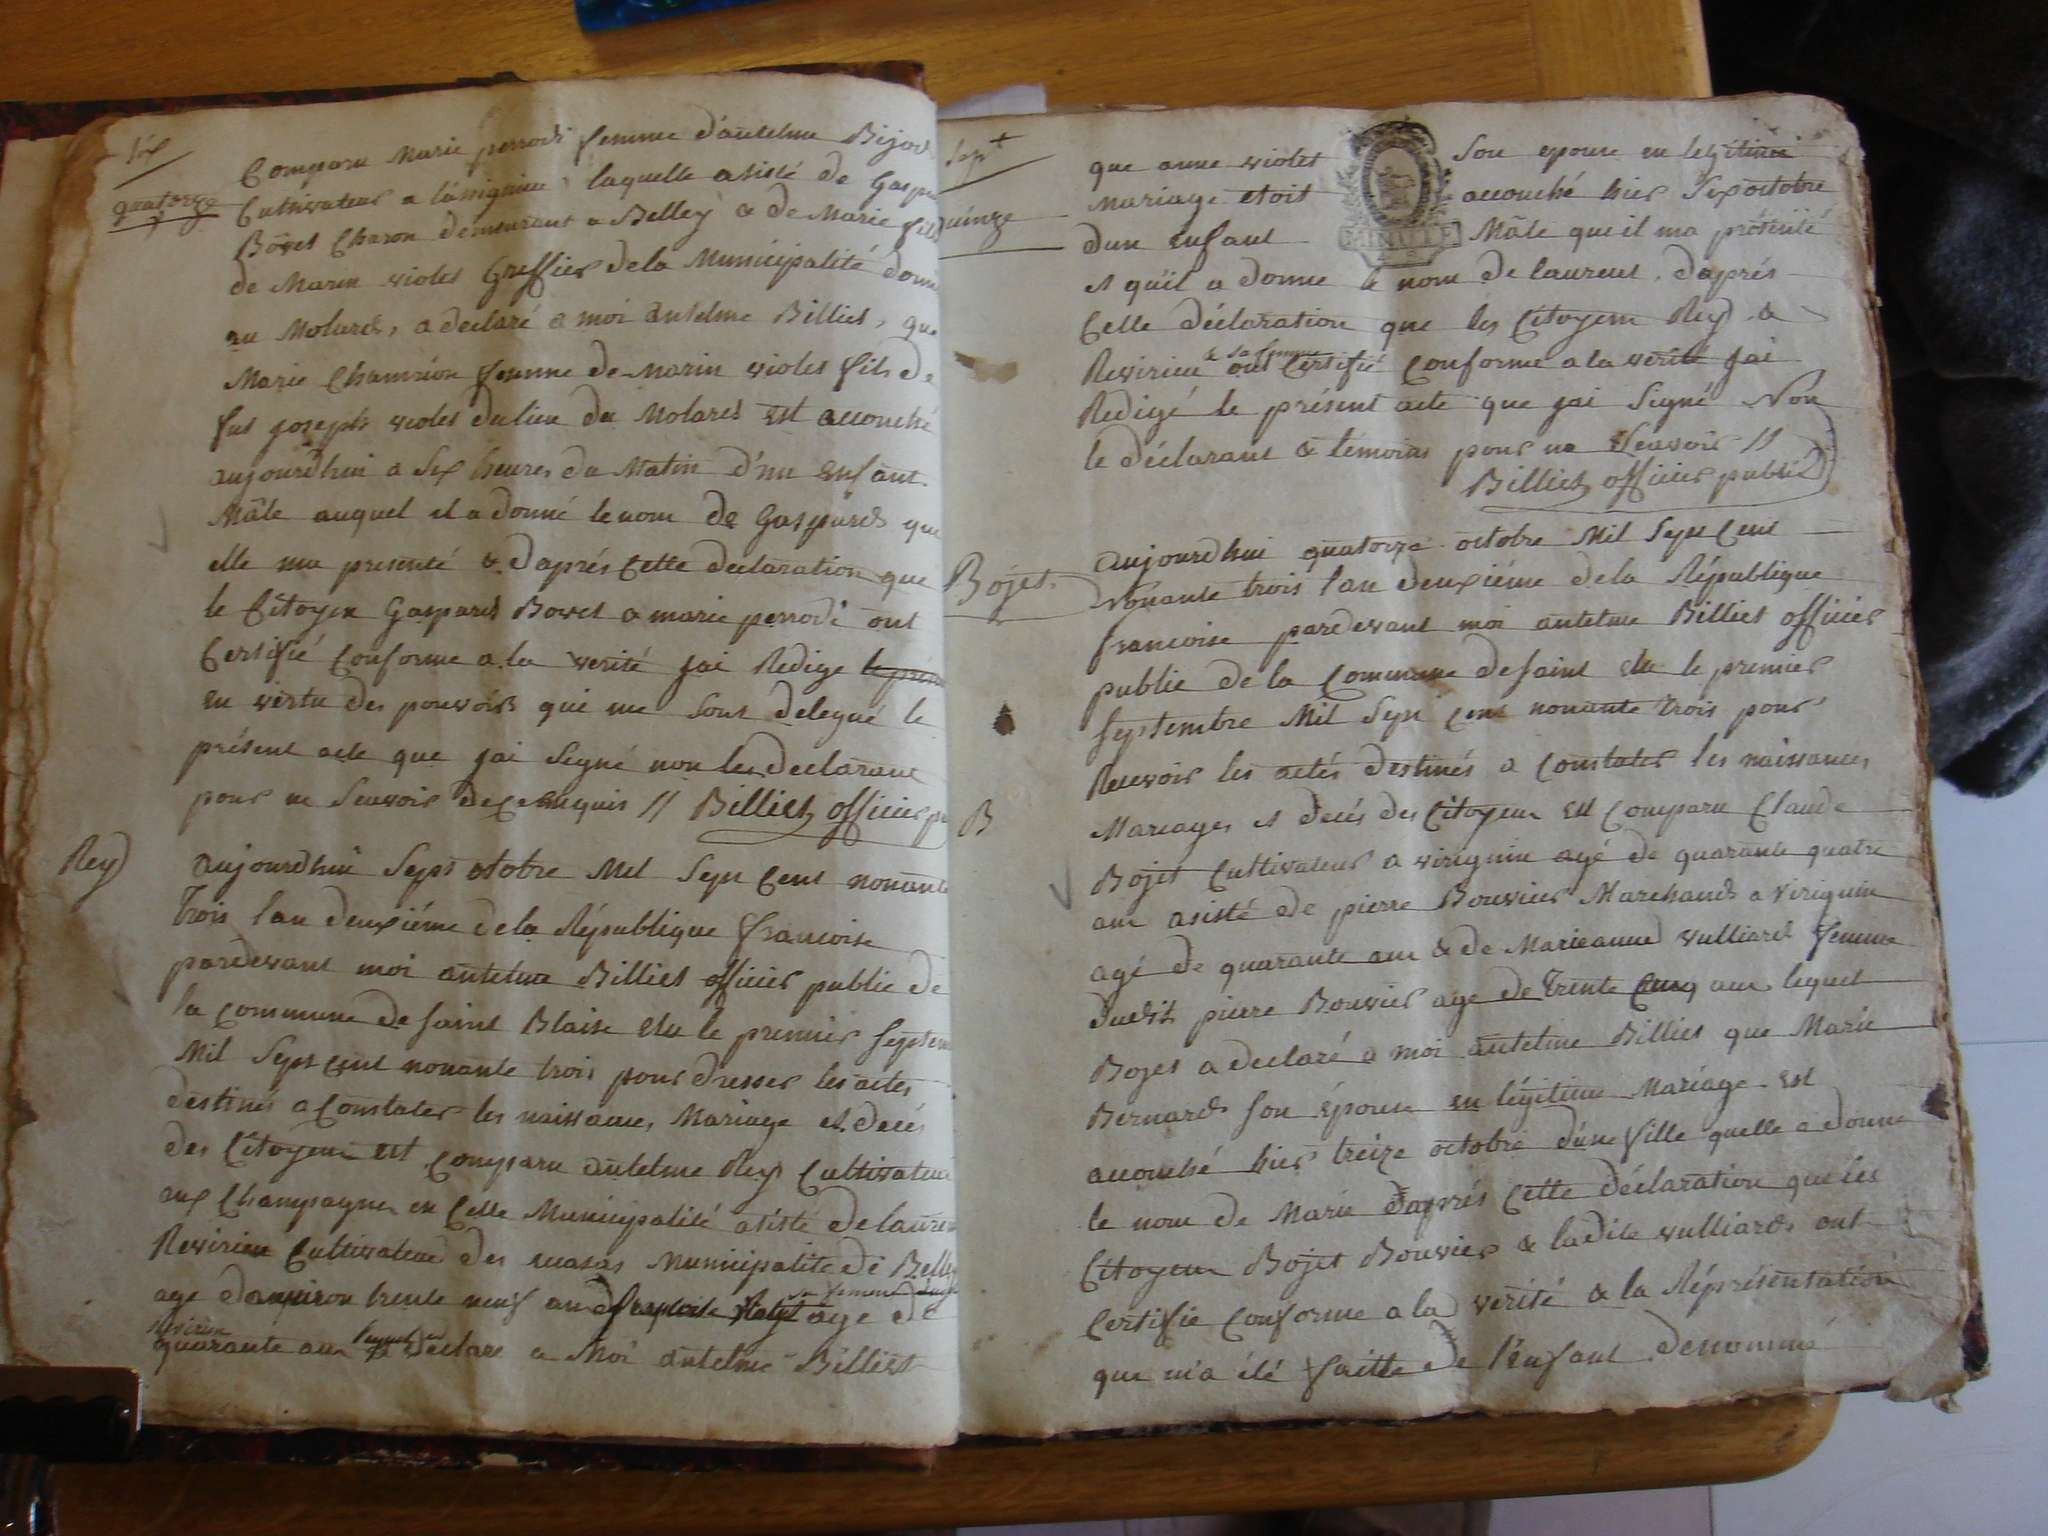 six
quatorze
Comparu Marie perrodi femme d'antelme Bijod
Cultivateur a laquelle asisté de Gaspa
Bovet Charon demeurant a Belley & de Marie
de Marin violet Greffier de la Municipalité
au Molard, a declaré a moi antelme Billiet, que
Marie Chamrion femme de Marin violet fils de
fut joseph violet du lieu du Molard est accouché
aujourdhui a Six heures du Matin d'un Enfant
Mâle auquel el a donné le nom de Gaspard que
elle ma presenté & daprés Cette declaration que
le Citoyen Gaspard Bovet & marie perrodi ont
Certifié Conforme a la verité jai Redige le prése
en vertu des pouvoirs qui me sont delegué le
présent acte que jai Signé non les declarant
pour ne Scavoir de ce enquis // Billiet officier pu
Rey
aujourdhui Sept otobre Mil Sept Cent nonante
Trois l'an deuxiéme de la République francoise
pardevant moi antelme Billiet officier public de
la Commune de saint Blaise elu le premier septem
Mil Sept Cent nonante trois pour dresser les actes
destinés a Constater les naissances, Mariage et decés
des Citoyens est Comparu antelme Rey Cultivateur
aux Champagnes en Celle Municipalité asisté de lauren
Revirieu Cultivateur des masas Municipalité de Belley
age danviron trente neuf ans sa femme age de
revirieu
quarante ans lequel a declare a Moi antelme Billiet
sept
quinze
que anne violet son epouse en legitime
mariage etoit accouché hier Six octobre
dun enfant Mâle que il ma présenté
et qu'il a donne le nom de laurent, daprés
Celle déclaration que les Citoyens Rey &
Revirieu & sa femme ont Certifié Conforme a la verité jai
Redigé le présent acte que jai Signé Non
le déclarant & témoins pour ne Scavoir //
Billiet officier public
MINUTE
Bojet
aujourdhui quatorze octobre Mil Sept Cent
Nonante trois l'an deuxiéme de la République
francoise pardevant moi antelme Billiet officier
public de la Commune de saint elu le premier
septembre Mil Sept Cent nonante trois pour
Recevoir les actés destinés a Constater les naissances,
B
Mariages et decés des Citoyens est Comparu Claude
Bojet Cultivateur a virignin agé de quarante quatre
ans asisté de pierre Bouvier Marchand a virignin
agé de quarante ans & de Marieanne vulliard femme
dudit pierre Bouvier age de Trente Cinq ans lequel
Bojet a declaré a moi antelme Billiet que Marie
Bernard son épouse en légitime Mariage est
accouché hier treize octobre d'une fille quelle a donne
le nom de Marie daprés Cette déclaration que les
Citoyens Bojet Bouvier & ladite vulliard ont
Certifie Conforme a la verité & la Répresentation
que m'a été faitte de l'enfant denommé